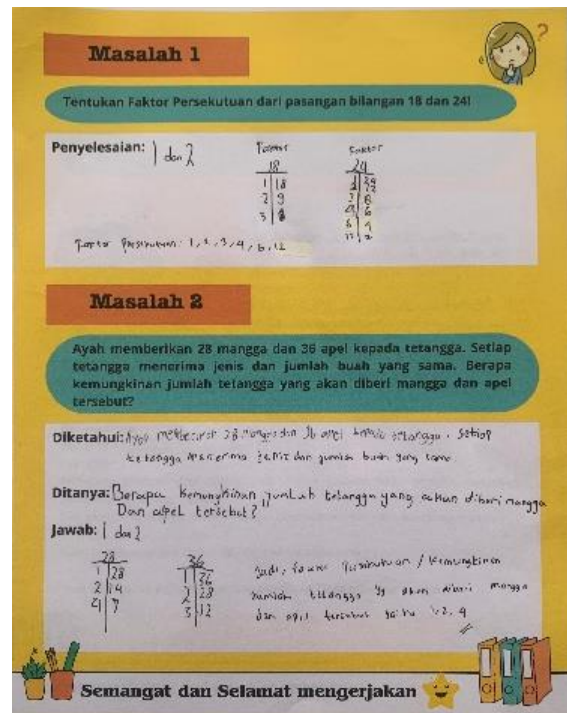 ?
Masalah 1
Tentukan Faktor Persekutuan dari pasangan bilangan 18 dan 24!
Penyelesaian: 1 dan 2
Faktor Faktor
18 24
1 18 1 24
2 9 2 12
3 3 8
4 6
6 4
12 2
Faktor Persekutuan: 1, 2, 3, 4, 6, 12
Masalah 2
Ayah memberikan 28 mangga dan 36 apel kepada tetangga. Setiap
tetangga menerima jenis dan jumlah buah yang sama. Berapa
kemungkinan jumlah tetangga yang akan diberi mangga dan apel
tersebut?
Diketahui: Ayah 28 mangga dan 36 apel kepada tetangga. Setiap
tetangga menerima jenis dan jumlah buah yang sama.
Ditanya: Berapa kemungkinan jumlah tetangga yang akan diberi mangga
Dan apel tersebut?
Jawab: 1 dan 2
28 36
1 28 1 36
2 14 2 28
4 7 3 12
Jadi, Faktor / kemungkinan
jumlah tetangga yg akan diberi mangga
dan apel tersebut yaitu 1, 2, 4
Semangat dan Selamat mengerjakan